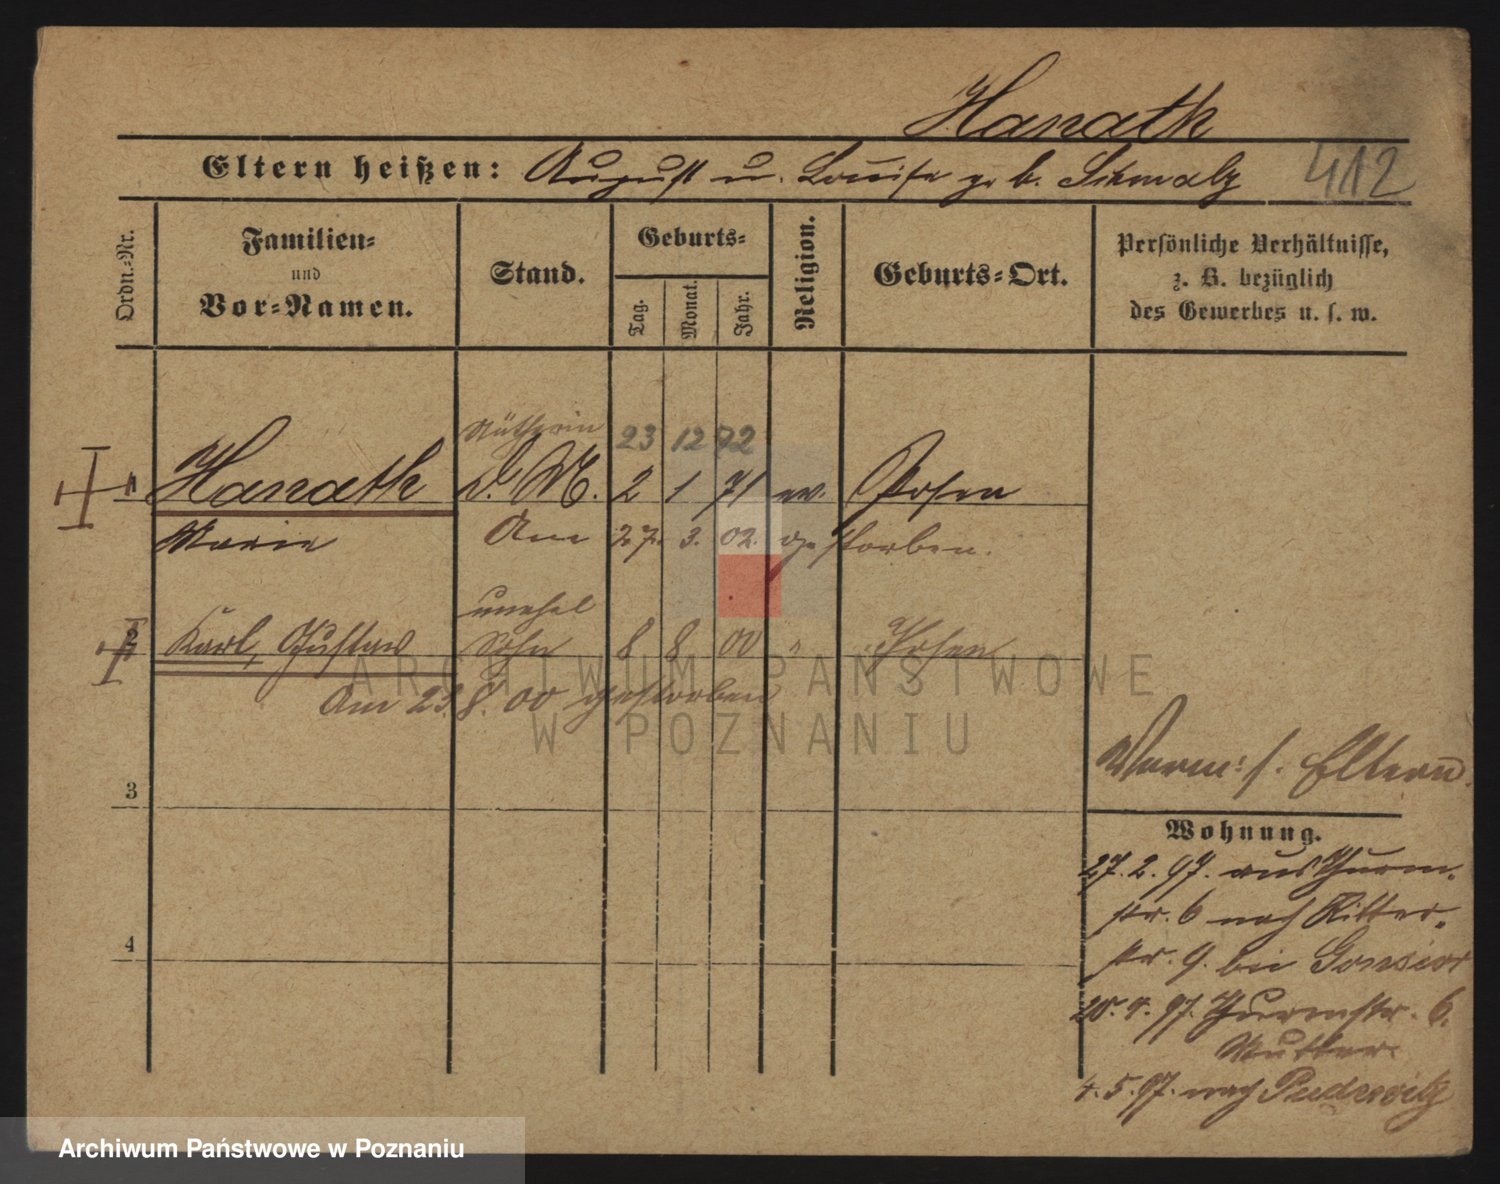 Hanath
Eltern heißen: August u. Louise geb. Schmalz
412
Ordn.-Nr.
Familien-
und
Vor-Namen.
Stand.
Geburts-
Tag.
Monat.
Jahr.
Religion.
Geburts-Ort.
Persönliche Verhältnisse,
z. B. bezüglich
des Gewerbes u. s. w.
Nätherin 23 12 72
1 Hanath D. M. 2 1 71 ev. Posen
Marie Am 27. 3. 02. gestorben.
unehel
2 Karl, Gustav Sohn 8 8 00 " Posen
Am 23. 8. 00 gestorben
3
4
Verm: s. Eltern
Wohnung.
27. 2. 97. aus Thurm-
str. 6 nach Ritter-
str. 9. bei Gonsior
97. Thurmstr. 6.
Mutter
4. 5. 97. nach Pudewitz
ARCHIWUM PAŃSTWOWE
W POZNANIU
Archiwum Państwowe w Poznaniu